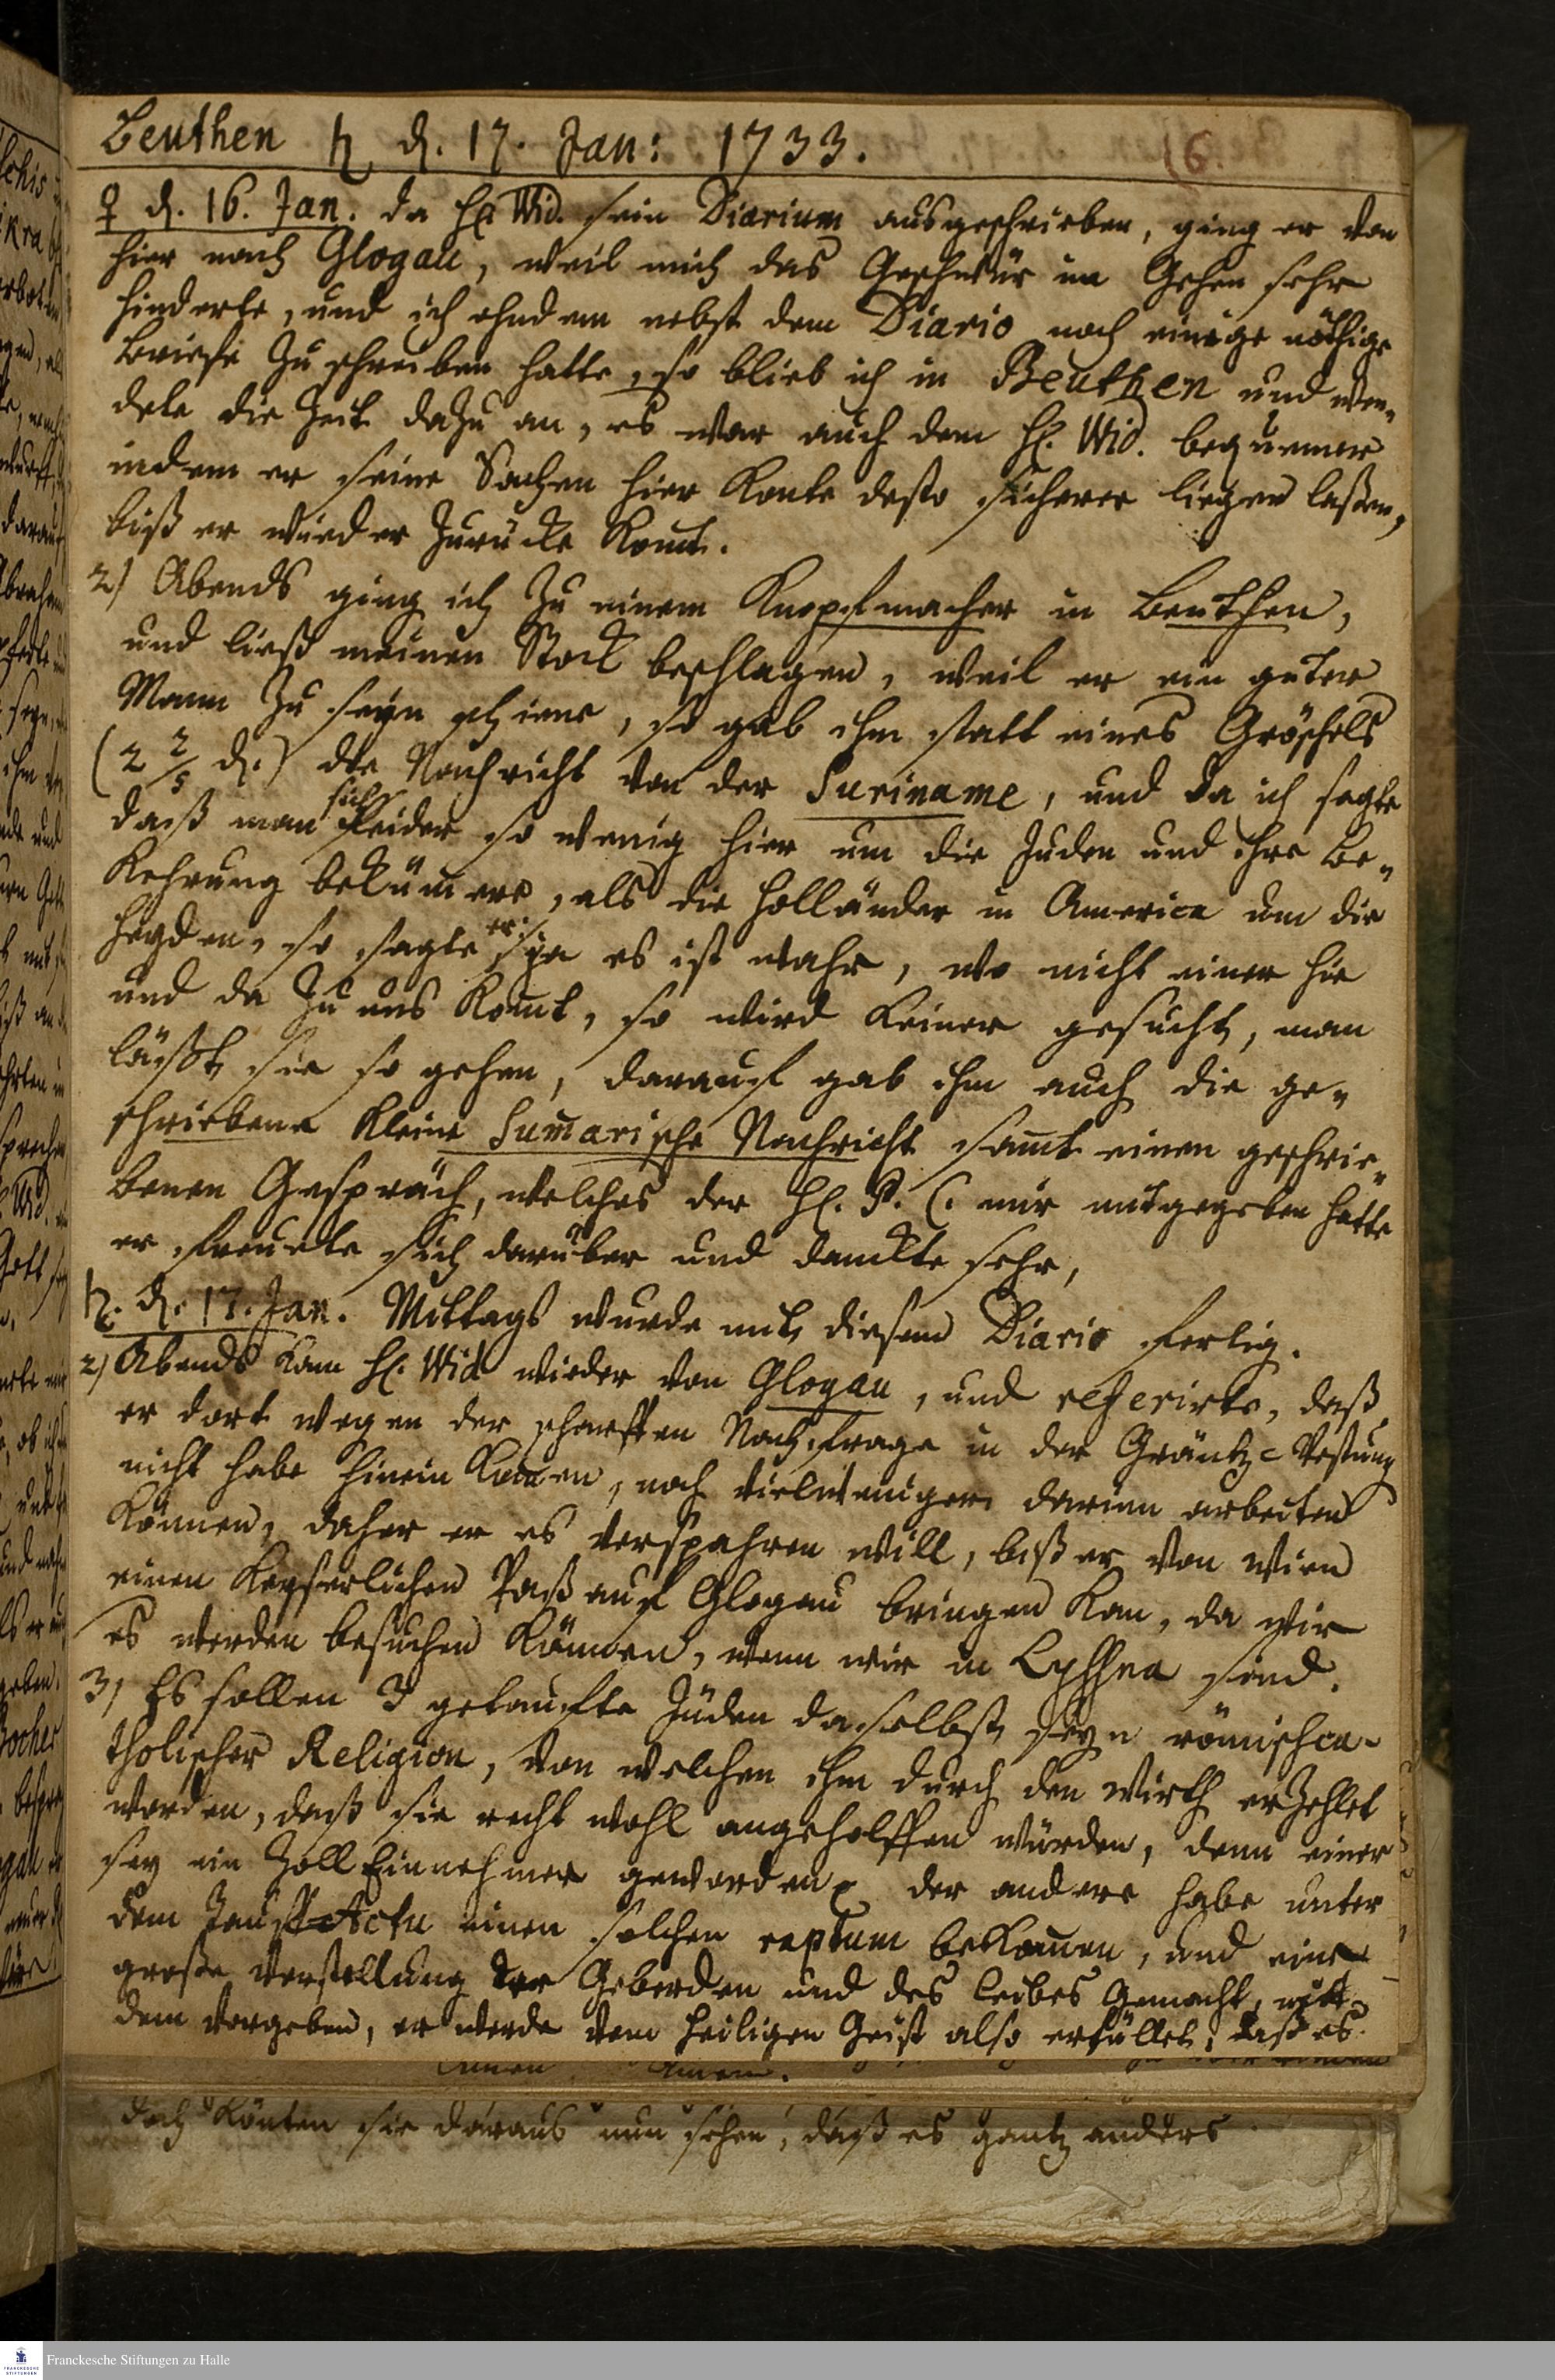 Beuthen ♄ d. 17. Jan: 1733.
(6.
♀ d. 16. Jan. da H. Wid. sein Diarium ausgeschrieben, ging er von
hier nach Glogau, weil mich das Geschwür im Gehen sehr
hinderte, und ich ehndem nebst dem Diario noch einige nöthige
Briefe zu schreiben hatte, so blieb ich in Beuthen und wen„
dete die Zeit dazu an, es war auch dem H. Wid. bequemer
indem er seine Sachen hier konte desto sicherer liegen laßen,
biß er wieder zurücke komt.
2) Abends ging ich zu einem Knopfmacher in Beuthen,
und ließ meinen Stock beschlagen, weil er ein guter
Mann zu seyn schiene, so gab ihm statt eines Gröschels
(2 2/5 d.) die Nachricht von der Suriname, und da ich sagte
daß man sich leider so wenig hier um die Juden und ihre Be„
kehrung bekümere, als die Holländer in America um die
Heyden, so sagte er: ja es ist wahr, wo nicht einer hie
und da zu uns komt, so wird keiner gesucht, man
läßt sie so gehen, darauf gab ihm auch die ge„
schriebene kleine Sumarische Nachricht samt einen geschrie„
benen Gespräch, welches der H. P. C. mir mitgegeben hatte
er freuete sich darüber und danckte sehr,
♄. d. 17. Jan. Mittags wurde mit diesem Diario fertig.
2) Abends kam H. Wid. wieder von Glogau, und referirte, daß
er dort wegen der scharffen Nachfrage in der Gräntz-Vestung
nicht habe hinein kommen, noch vielweniger darinn arbeiten
können, daher er es verspahren will, biß er von Wien
einen Keyserlichen Paß auf Glogau bringen kan, da wir
es werden besuchen können, wenn wir in Lyssna sind.
3) Es sollen 3 getauffte Jüden daselbst seyn römischca-
tholischer Religion, von welchen ihm durch den Wirth erzehlet
worden, daß sie recht wohl angeholffen würden, denn einer
sey ein Zoll Einnehmer geworden, der andere habe unter
dem Tauff-Actu einen solchen raptum bekomen, und eine
große Verstellung der Geberden und des Leibes gemacht, mit
dem vorgeben, er werde vom heiligen Geist also erfüllet, daß es
doch könten sie daraus nun sehen, daß es gantz anders
Franckesche Stiftungen zu Halle